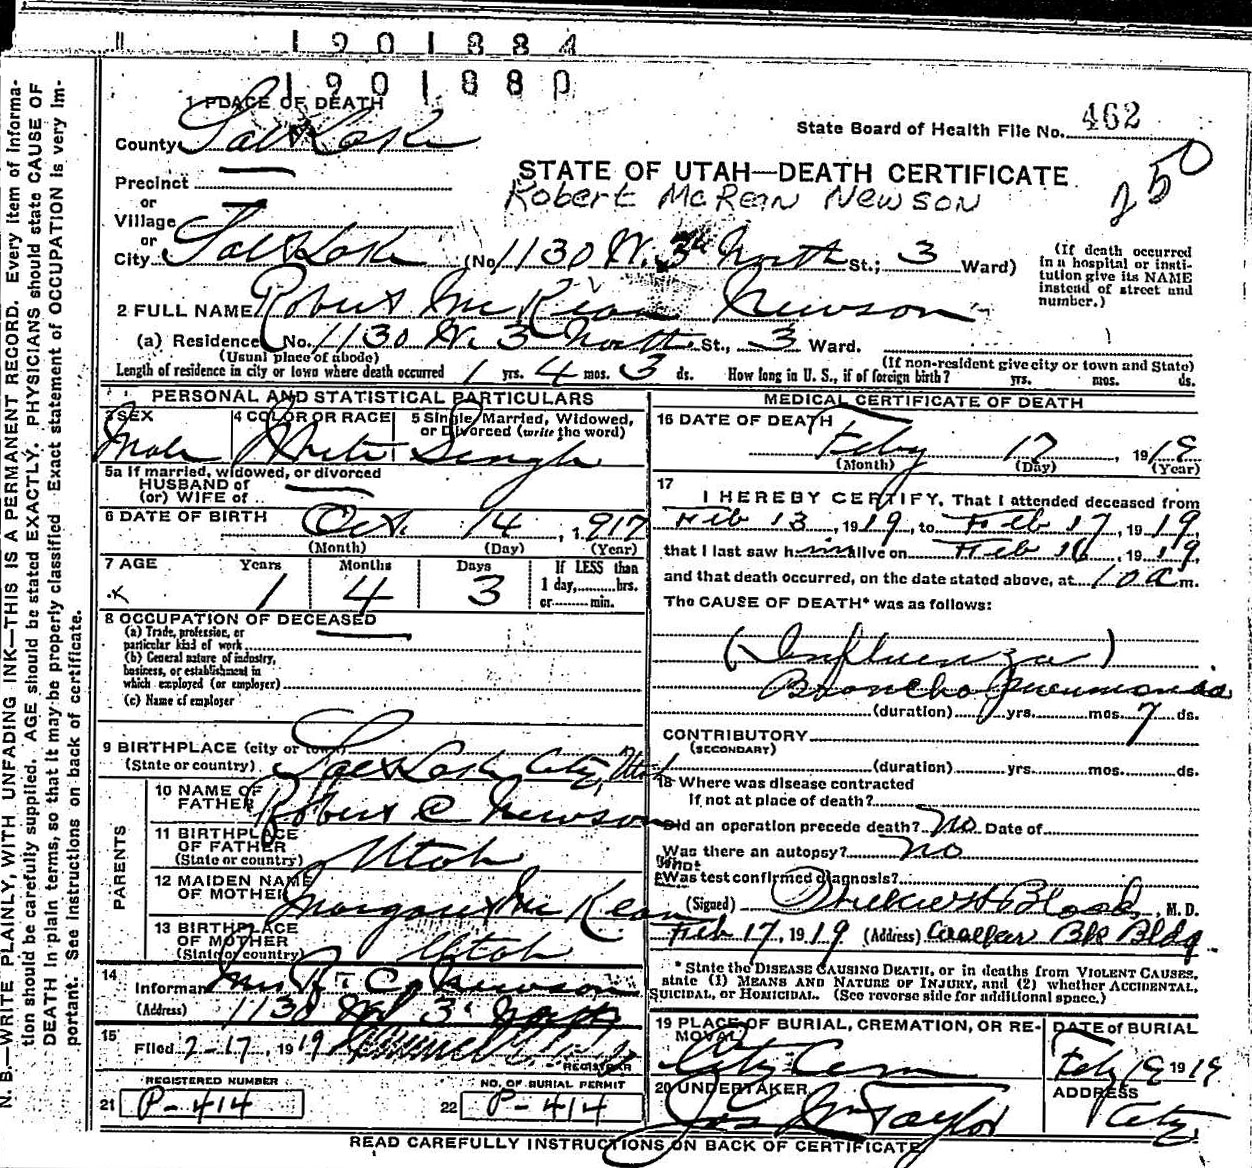 1901884
1901880
1 PLACE OF DEATH
State Board of Health File No. 462
County Salt Lake
250
STATE OF UTAH—DEATH CERTIFICATE
Precinct
Robert McKean Newson
or
Village
or
City Salt Lake (No. 1130 W. 3d North St.; 3 Ward)
(If death occurred in a hospital or institution give its NAME instead of street and number.)
2 FULL NAME Robert McKean Newson
(a) Residence No. 1130 W. 3 North St., 3 Ward.
(Usual place of abode) (If non-resident give city or town and State)
Length of residence in city or town where death occurred 1 yrs. 4 mos. 3 ds. How long in U. S., if of foreign birth? yrs. mos. ds.
PERSONAL AND STATISTICAL PARTICULARS
3 SEX 4 COLOR OR RACE 5 Single, Married, Widowed, or Divorced (write the word)
Male White Single
5a If married, widowed, or divorced
HUSBAND of
(or) WIFE of
6 DATE OF BIRTH Oct. 14, 1917
(Month) (Day) (Year)
7 AGE Years Months Days If LESS than
1 4 3 1 day, hrs.
or min.
8 OCCUPATION OF DECEASED
(a) Trade, profession, or
particular kind of work
(b) General nature of industry,
business, or establishment in
which employed (or employer)
(c) Name of employer
9 BIRTHPLACE (city or town)
(State or country) Salt Lake City, Utah
PARENTS
10 NAME OF
FATHER Robert C Newson
11 BIRTHPLACE
OF FATHER
(State or country) Utah
12 MAIDEN NAME
OF MOTHER Margaret McKean
13 BIRTHPLACE
OF MOTHER
(State or country) Utah
14
Informant Mrs R. C. Newson
(Address) 1130 W 3d North
15
Filed 2-17, 1919
REGISTRAR
REGISTERED NUMBER NO. OF BURIAL PERMIT
21 P-414 22 P-414
MEDICAL CERTIFICATE OF DEATH
16 DATE OF DEATH
Feby 17, 1919
(Month) (Day) (Year)
17
I HEREBY CERTIFY, That I attended deceased from
Feb 13, 1919, to Feb 17, 1919
that I last saw him alive on Feb 16, 1919,
and that death occurred, on the date stated above, at 10 a m.
The CAUSE OF DEATH* was as follows:
(Influenza)
Broncho Pneumonia
(duration) yrs. mos. 7 ds.
CONTRIBUTORY
(SECONDARY)
(duration) yrs. mos. ds.
18 Where was disease contracted
If not at place of death?
Did an operation precede death? No Date of
Was there an autopsy? No
What
Was test confirmed diagnosis?
(Signed) M. D.
Feb 17, 1919 (Address) Walker Bk Bldg.
* State the DISEASE CAUSING DEATH, or in deaths from VIOLENT CAUSES,
state (1) MEANS AND NATURE OF INJURY, and (2) whether ACCIDENTAL,
SUICIDAL, or HOMICIDAL. (See reverse side for additional space.)
19 PLACE OF BURIAL, CREMATION, OR RE- DATE of BURIAL
MOVAL
City Cem Feby 19 1919
20 UNDERTAKER ADDRESS
Jos Wm Taylor City
READ CAREFULLY INSTRUCTIONS ON BACK OF CERTIFICATE
N. B.—WRITE PLAINLY, WITH UNFADING INK—THIS IS A PERMANENT RECORD. Every item of informa-
tion should be carefully supplied. AGE should be stated EXACTLY. PHYSICIANS should state CAUSE OF
DEATH in plain terms, so that it may be properly classified. Exact statement of OCCUPATION is very im-
portant. See instructions on back of certificate.